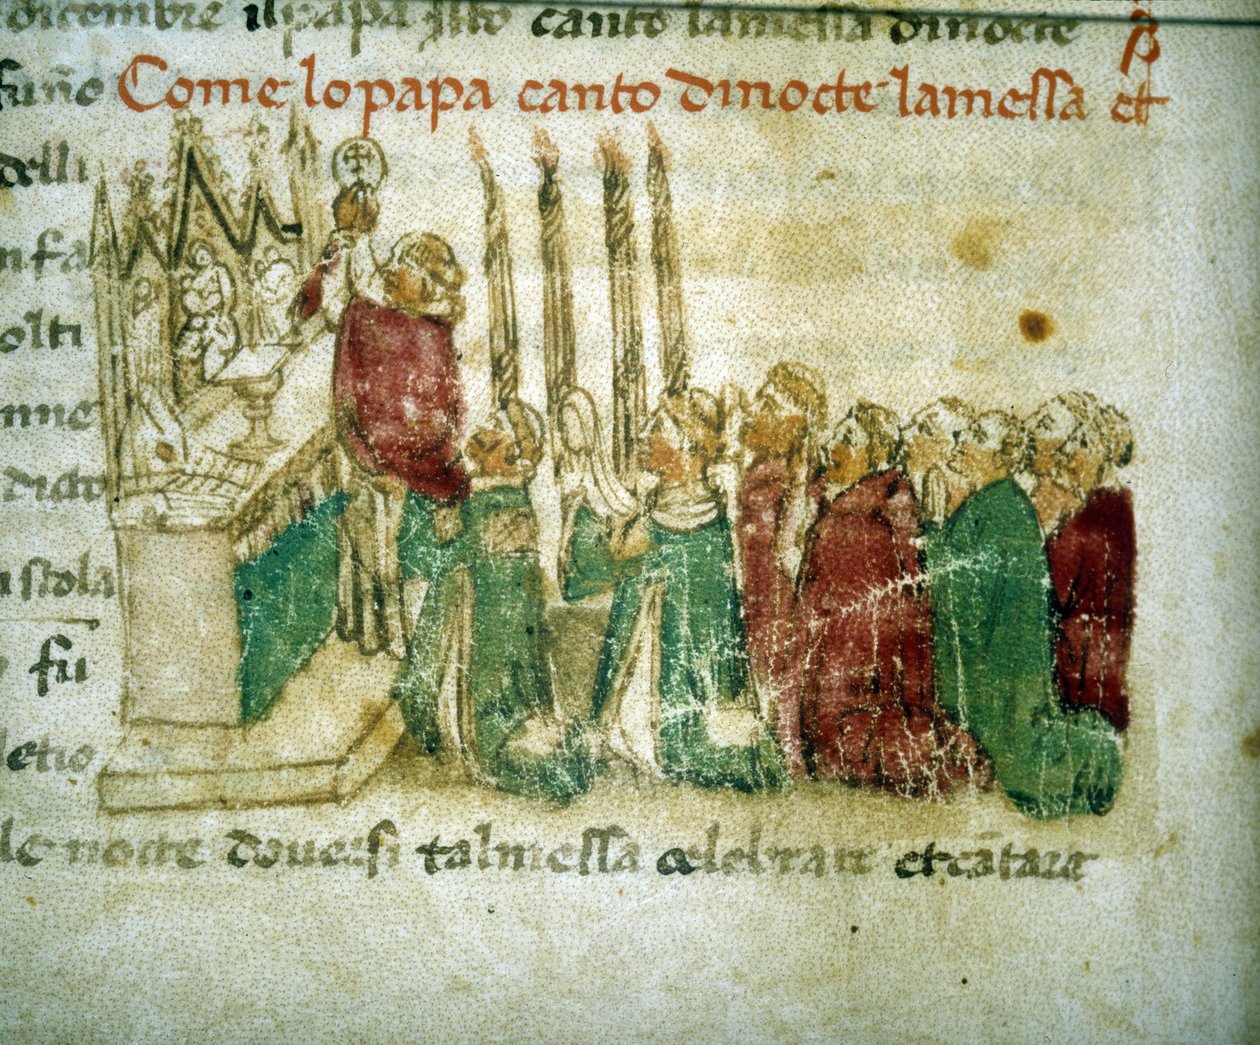 dicembre il papa canto lamessa dinocte
Come lo papa canto dinocte lamessa et
dell
nfa
olti
nme
stola
fu
le nocte douersi tal messa celebrare et cãtare